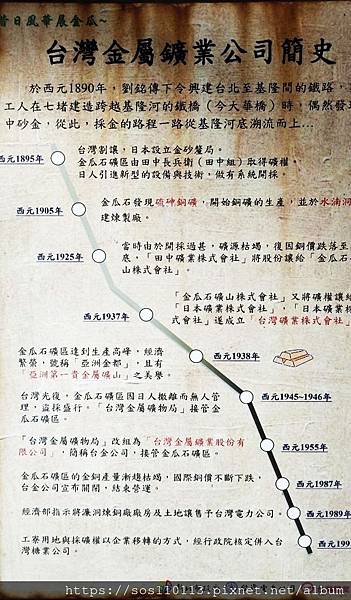 昔日風華展金瓜~
台灣金屬鑛業公司簡史
於西元1890年,劉銘傳下令興建台北至基隆間的鐵路,
工人在七堵建造跨越基隆河的鐵橋(今大華橋)時,偶然發現
中砂金,從此,採金的路程一路從基隆河底溯流而上…
西元1895年
台灣割讓,日本設立金砂釐局。
金瓜石礦區由田中長兵衛(田中組)取得礦權。
日人引進新型的設備與技術,做有系統開採。
西元1905年
金瓜石發現硫砷銅礦,開始銅礦的生產,並於水湳洞
建煉製廠。
西元1925年
當時由於開採過甚,礦源枯竭,復因銅價跌落至
底,「田中礦業株式會社」將股份讓給「金瓜石
山株式會社」。
西元1937年
「金瓜石礦山株式會社」又將礦權讓給
「日本礦業株式會社」,「日本礦業株
式會社」遂成立「台灣礦業株式會社」
西元1938年
金瓜石礦區達到生產高峰,經濟
繁榮,號稱「亞洲金都」,且有
「亞洲第一貴金屬礦山」之美譽。
西元1945~1946年
台灣光復,金瓜石礦區因日人撤離而無人管
理,盜採盛行。「台灣金屬礦物局」接管金
瓜石礦區。
西元1955年
「台灣金屬礦物局」改組為「台灣金屬礦業股份有
限公司」,簡稱台金公司,接管金瓜石礦區。
西元1987年
金瓜石礦區的金銅產量漸趨枯竭,國際銅價不斷下跌,
台金公司宣布關閉,結束營運。
西元1989年
經濟部指示將濂洞煉銅廠廠房及土地讓售予台灣電力公司。
西元199
工寮用地與採礦權以企業移轉的方式,經行政院核定併入台
灣糖業公司。
https://sos110113.pixnet.net/album